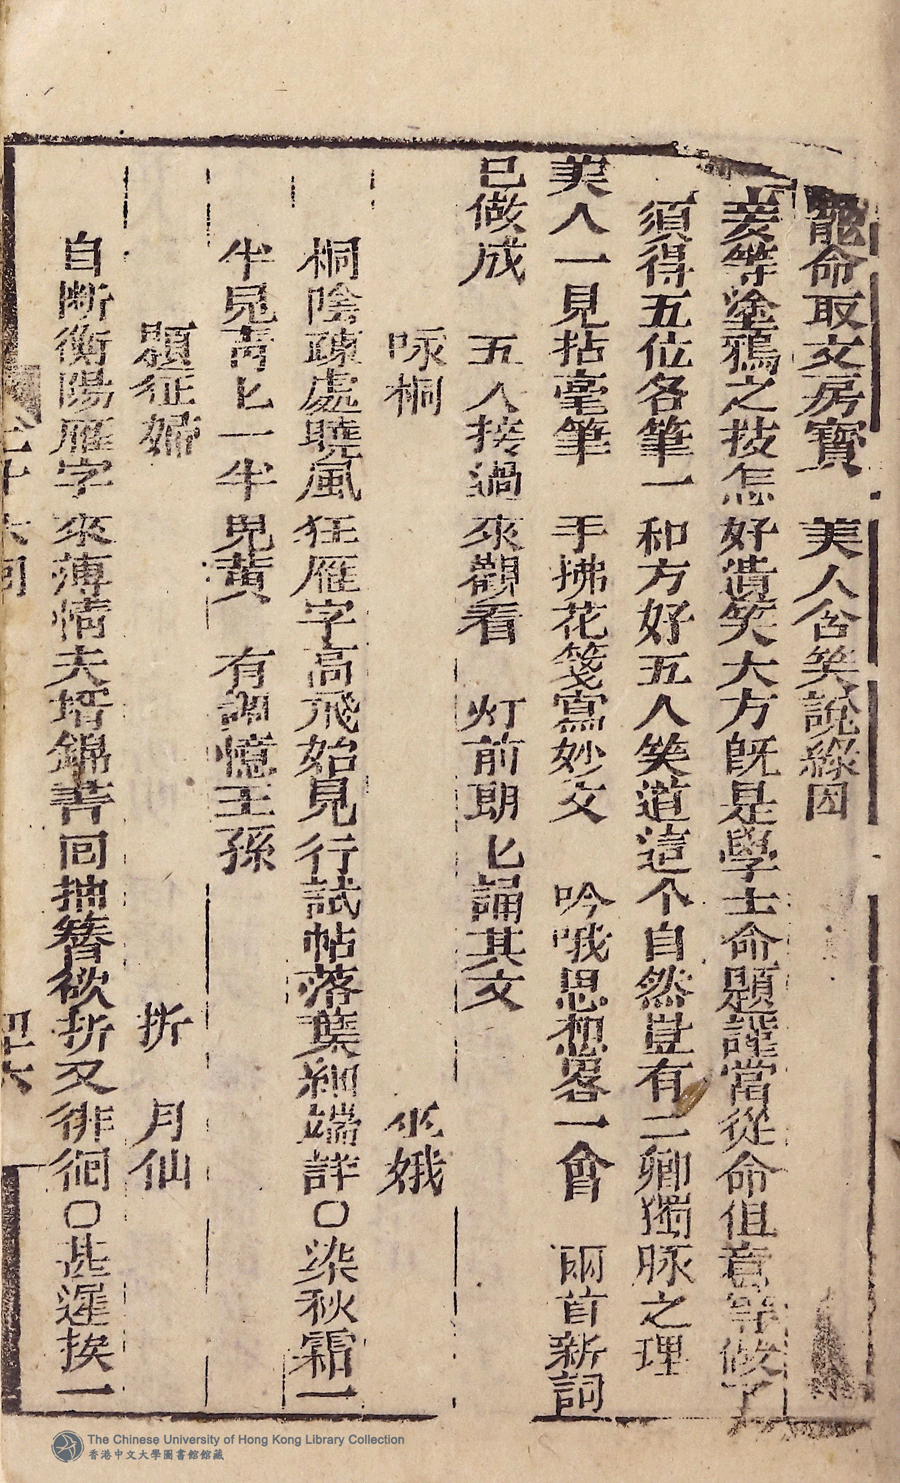 寵命取文房寶　美人含笑說緣因
妾等塗鴉之技怎好遺笑大方既是學士命題謹當從命但妾等做了
須得五位各筆一和方好五人笑道這个自然豈有二卿獨脉之理
美人一見拈毫筆　手拂花箋寫妙文　吟哦思想畧一會　兩首新詞
已做成　五人接過來觀看　灯前期匕誦其文
咏桐　巫娥
桐陰疎處曉風狂雁字高飛始見行試帖落葉細端詳○染秋霜一
半児靑匕一半児黄　有調憶王孫
題征婦　折　月仙
自斷衡陽雁字來薄情夫壻錦書回抽簪欲折又徘徊○甚遲挨一
The Chinese University of Hong Kong Library Collection
香港中文大學圖書館館藏